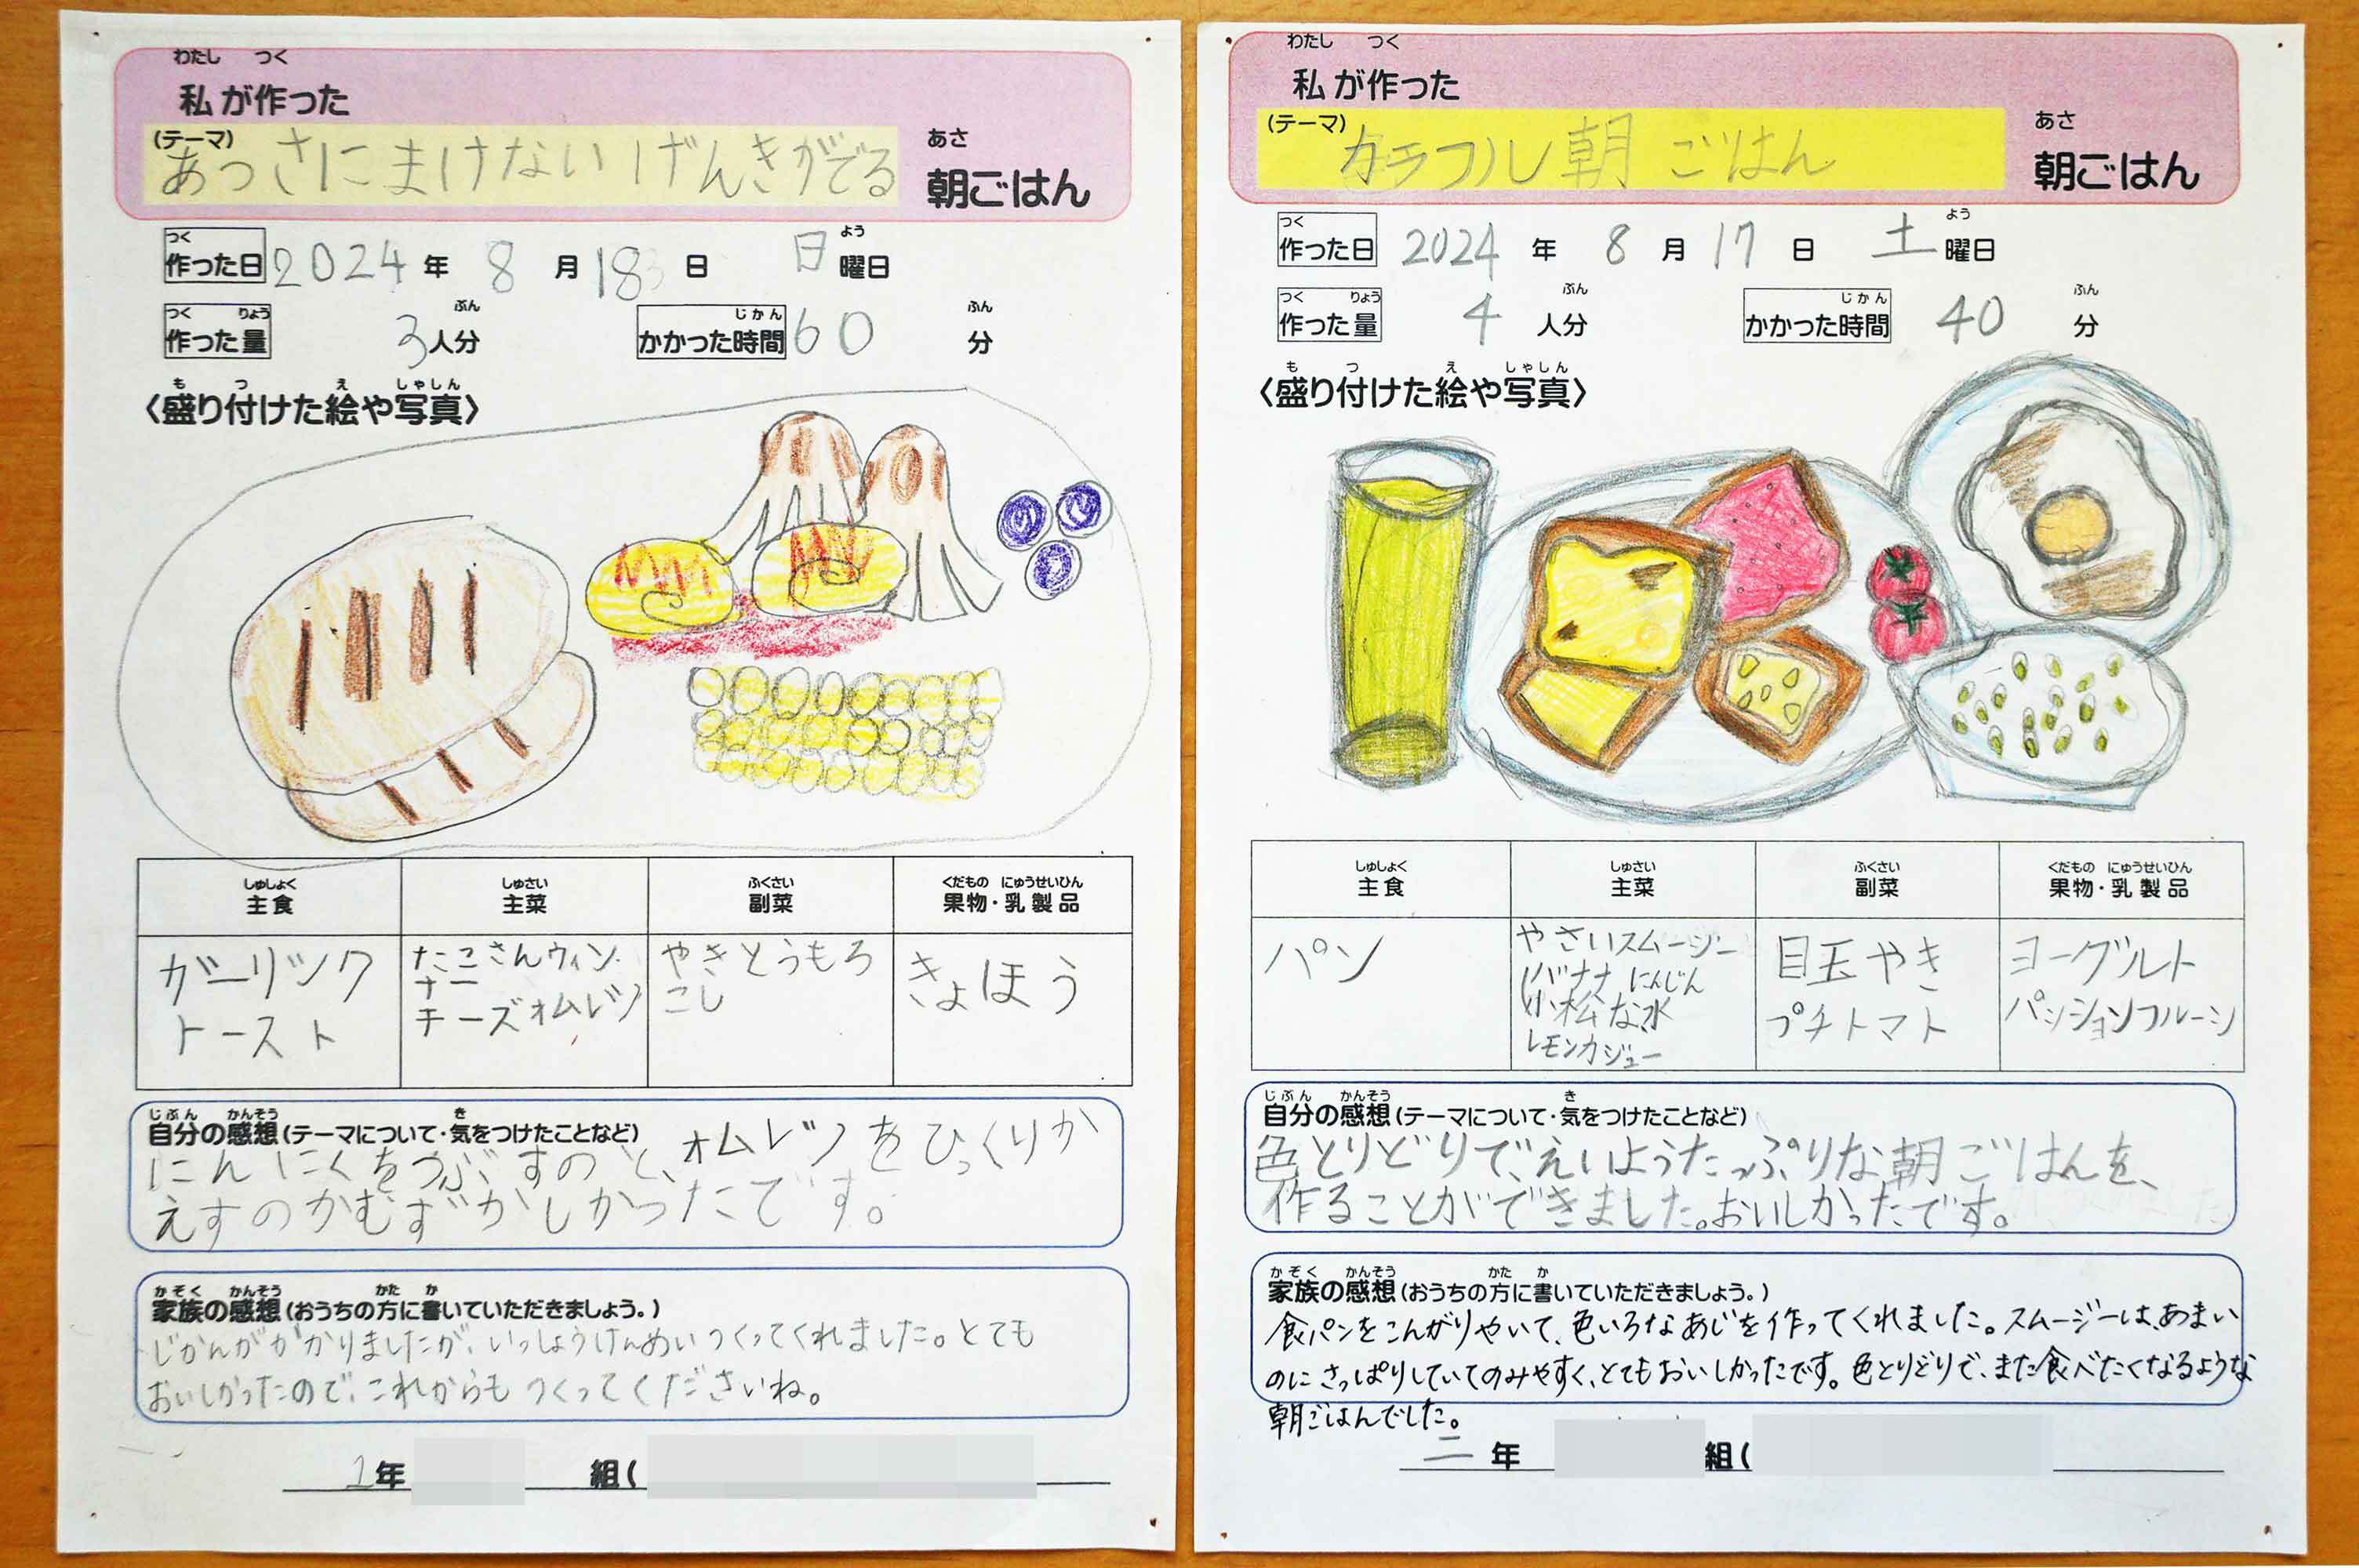 わたし つく
私が作った
(テーマ)
あつさにまけないげんきがでる
あさ
朝ごはん
つく
作った日 2024年 8月 18日 日曜日
よう
つく りょう ぶん じかん ふん
作った量 3人分 かかった時間 60 分
も つ え しゃしん
〈盛り付けた絵や写真〉
しゅしょく しゅさい ふくさい くだもの にゅうせいひん
主食 主菜 副菜 果物・乳製品
ガーリック
トースト
たこさんウィン
ナー
チーズオムレツ
やきとうもろ
こし
きょほう
じぶん かんそう き
自分の感想(テーマについて・気をつけたことなど)
オムレツをひっくりか
にんにくをつぶすのと、
えすのがむずかしかったです。
かぞく かんそう かた か
家族の感想(おうちの方に書いていただきましょう。)
じかんがかかりましたが、いっしょうけんめいつくってくれました。とても
おいしかったので、これからもつくってくださいね。
1年 組(
わたし つく
私が作った
(テーマ)
カラフル朝ごはん
あさ
朝ごはん
つく よう
作った日 2024年 8月 17日 土曜日
つく りょう ぶん じかん ふん
作った量 4人分 かかった時間 40 分
も つ え しゃしん
〈盛り付けた絵や写真〉
しゅしょく しゅさい ふくさい くだもの にゅうせいひん
主食 主菜 副菜 果物・乳製品
パン
やさいスムージー
(バナナ にんじん
小松な水
レモンカジュー
目玉やき
プチトマト
ヨーグルト
パッションフルーツ
じぶん かんそう き
自分の感想(テーマについて・気をつけたことなど)
色とりどりで、えいようたっぷりな朝ごはんを、
作ることができました。おいしかったです。
かぞく かんそう かた か
家族の感想(おうちの方に書いていただきましょう。)
食パンをこんがりやいて、色いろなあじを作ってくれました。スムージーは、あまい
のにさっぱりしていてのみやすく、とてもおいしかったです。色とりどりで、また食べたくなるような
朝ごはんでした。
二年 組(